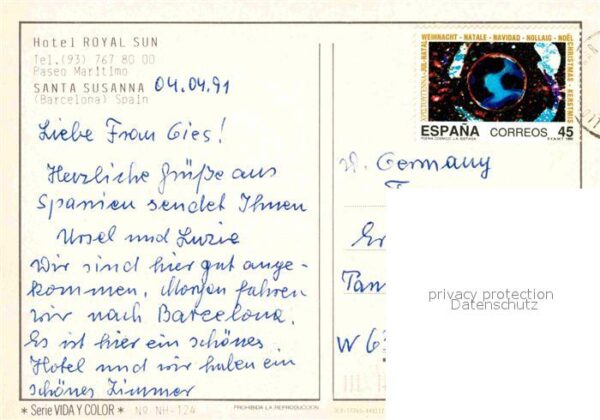 Hotel ROYAL SUN
Tel.(93) 767 80 00
Paseo Marítimo
SANTA SUSANNA
(Barcelona) Spain
04.04.91
Liebe Frau Gies!
Herzliche Grüße aus
Spanien sendet Ihnen
Ursel und Luzie
Wir sind hier gut ange-
kommen. Morgen fahren
wir nach Barcelona.
Es ist hier ein schönes
Hotel und wir haben ein
schönes Zimmer
* Serie VIDA Y COLOR * Nº NH-124
PROHIBIDA LA REPRODUCCION
WEIHNACHT - NATALE - NAVIDAD - NOLLAIG - NOËL
CHRISTMAS - KERSTMIS
JUL - NATAL
ESPAÑA CORREOS 45
W. Germany
W 6
privacy protection
Datenschutz